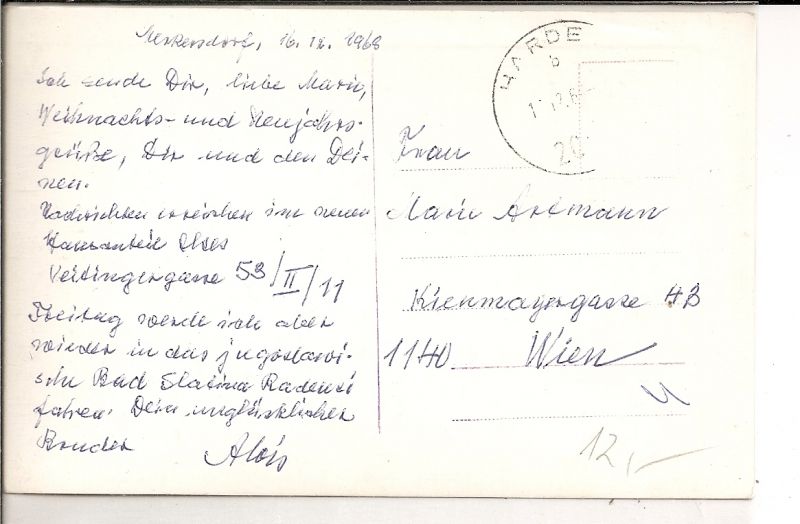 Merkersdorf, 16. 12. 1968
Ich sende Dir, liebe Marie,
Weihnachts- und Neujahrs-
grüße, Dir und den Dei-
nen.
Nachrichten erreichen im neuen
Veitingergasse 53/II/11
Freitag werde ich aber
wieder in das jugoslawi-
sche Bad Slatina Radenci
fahren. Dein unglücklicher
Bruder
Alois
HARDE
b
20
Frau
Marie Artmann
Kienmayergasse 43
1140 Wien
12,-